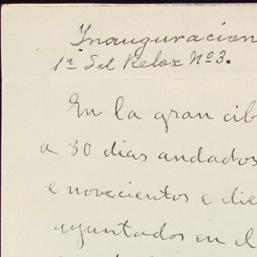 Inauguracion
1ª del Relox Nº 3.
En la gran cib
a 30 dias andados
e novecientos e die
ayuntados en el